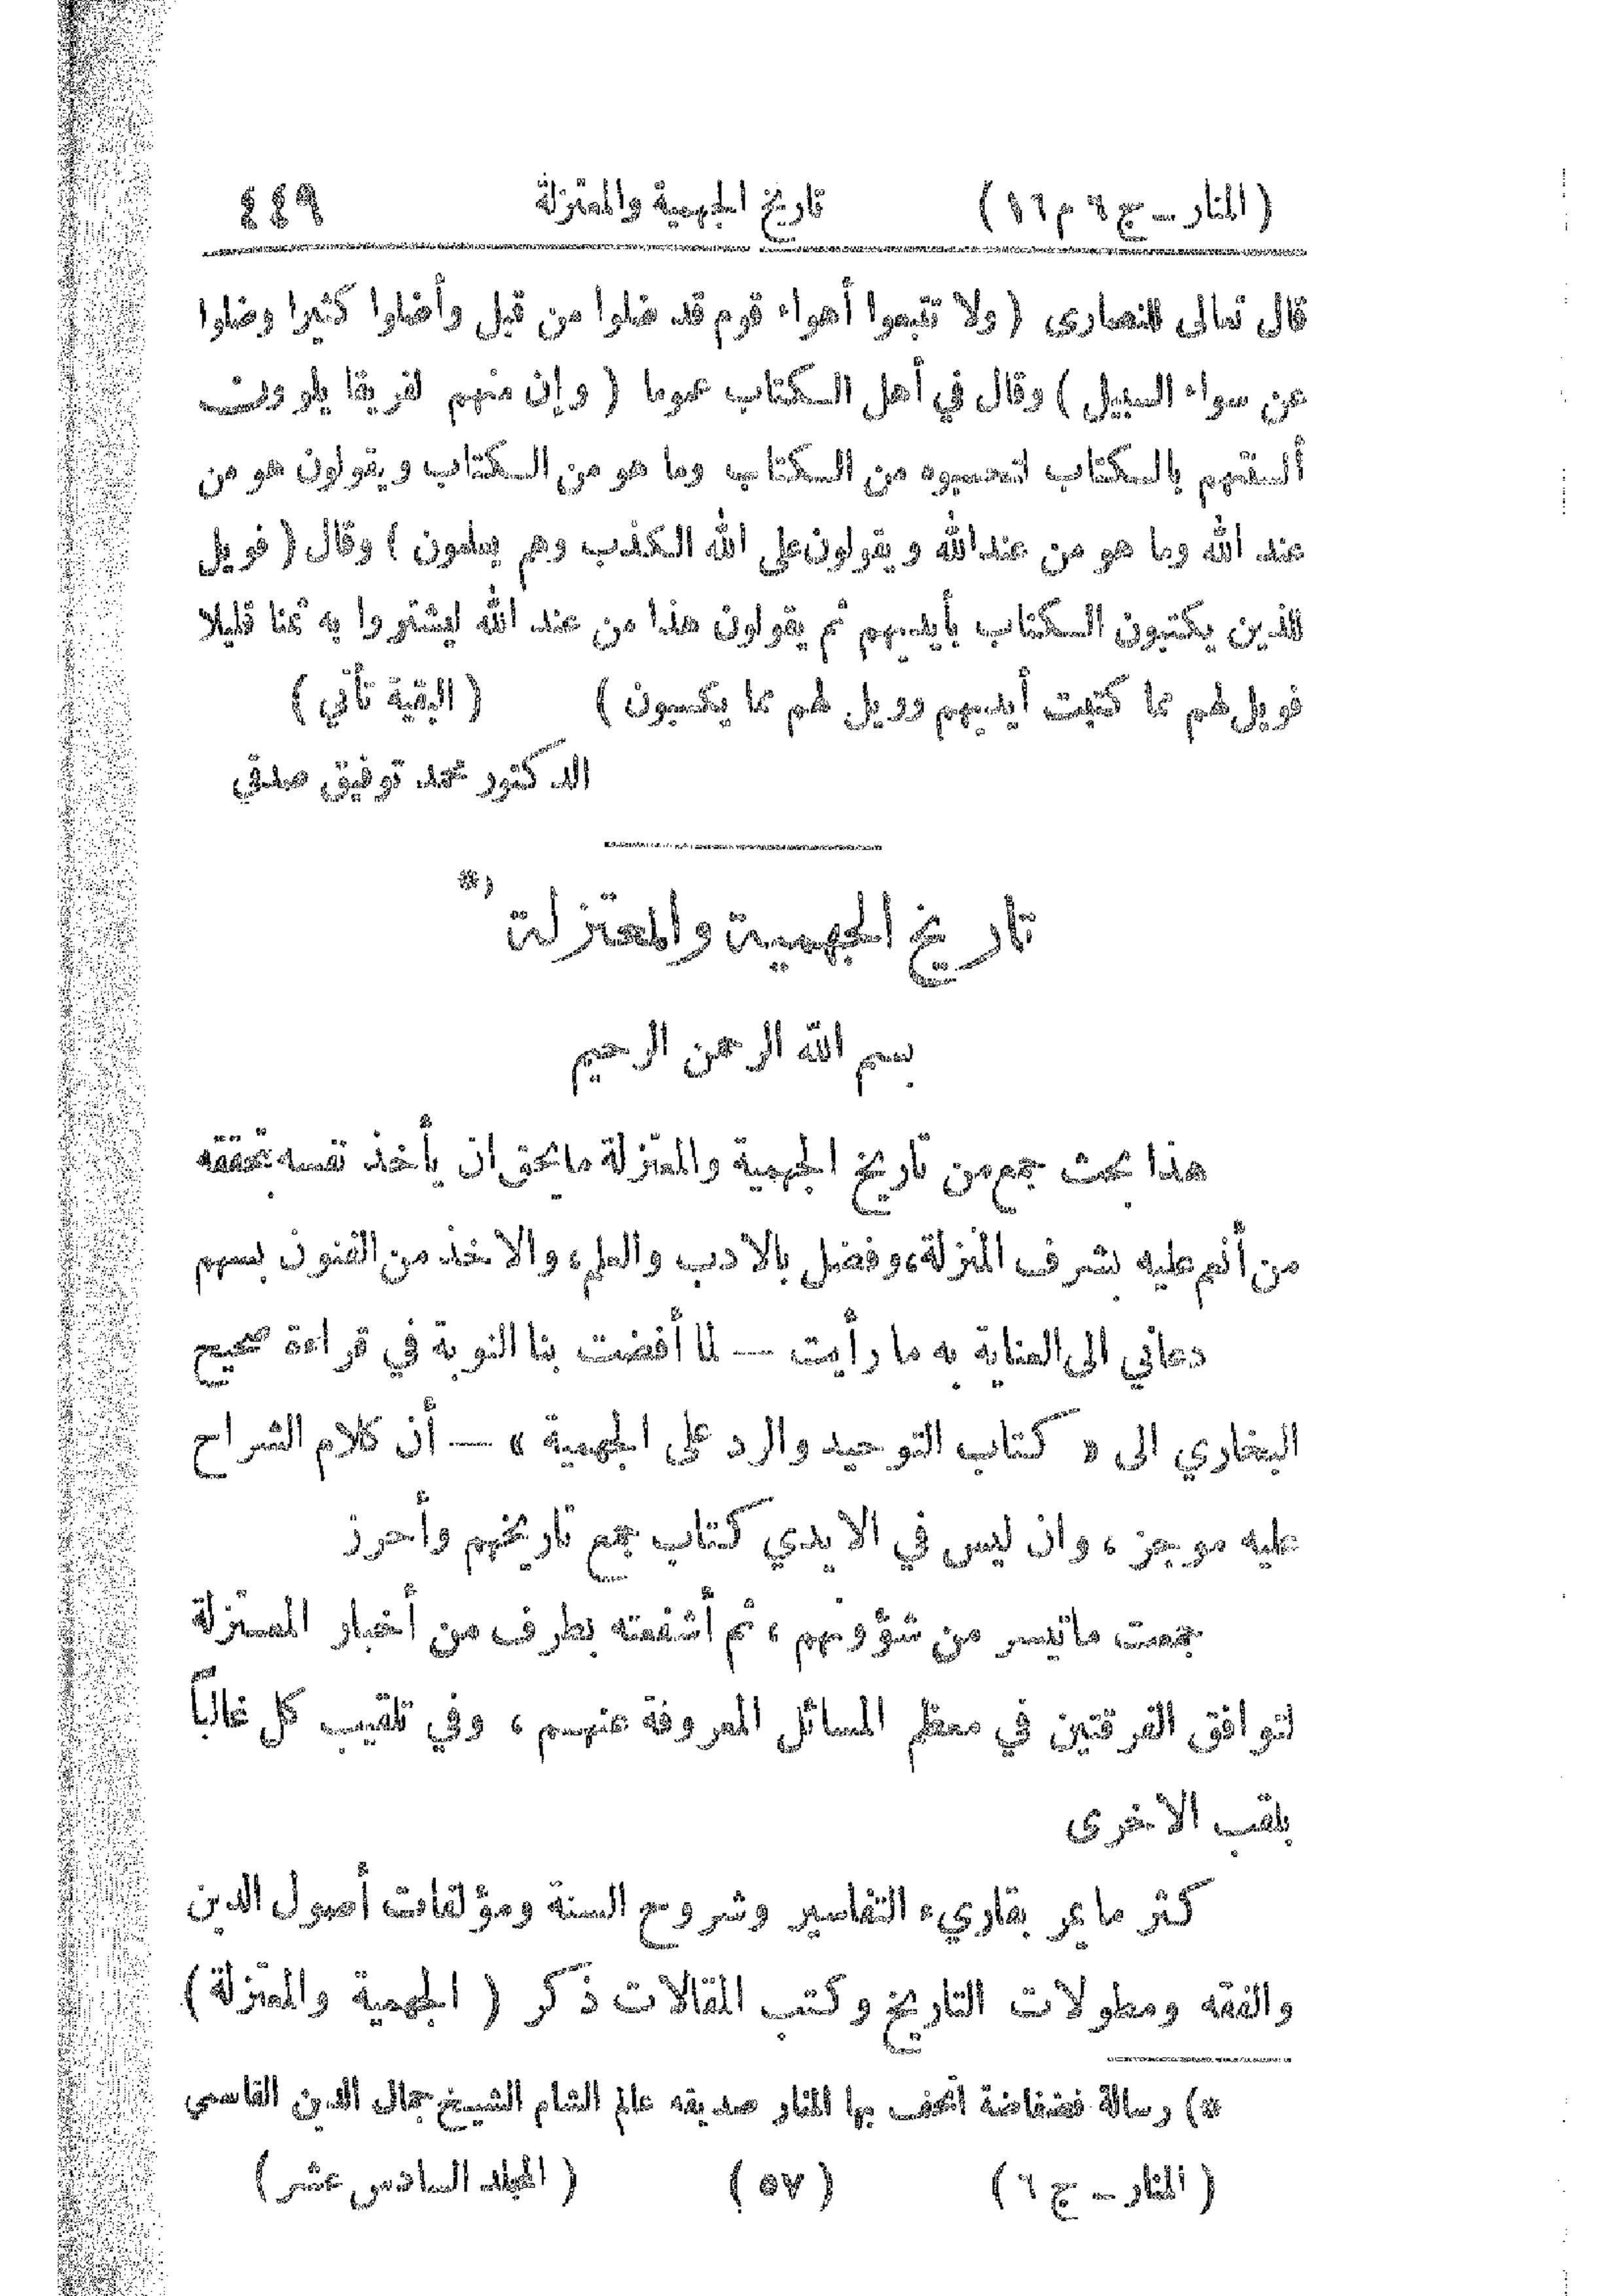 (المنار – ج ٦ م ١٦) تاريخ الجهمية والمعتزلة ٤٤٩
قال تعالى للنصارى ( ولا تتبعوا أهواء قوم قد ضلوا من قبل وأضلوا كثيرا وضلوا
عن سواء السبيل ) وقال في أهل الكتاب عموما ( وإن منهم لفريقا يلوون
ألسنتهم بالكتاب لتحسبوه من الكتاب وما هو من الكتاب ويقولون هو من
عند الله وما هو من عند الله ويقولون على الله الكذب وهم يعلمون ) وقال ( فويل
للذين يكتبون الكتاب بأيديهم ثم يقولون هذا من عند الله ليشتروا به ثمنا قليلا
فويل لهم مما كتبت أيديهم وويل لهم مما يكسبون ) ( البقية تأتي )
الدكتور محمد توفيق صدقي
تاريخ الجهمية والمعتزلة *)
بسم الله الرحمن الرحيم
هذا بحث جمع من تاريخ الجهمية والمعتزلة ما يحق ان يأخذ نفسه بتحققه
من أنعم عليه بشرف المنزلة، وفضل بالادب والعلم، والاخذ من الفنون بسهم
دعاني الى العناية به ما رأيت — لما أفضت بنا النوبة في قراءة صحيح
البخاري الى « كتاب التوحيد والرد على الجهمية » — أن كلام الشراح
عليه موجز، وان ليس في الايدي كتاب جمع تاريخهم وأحرز
جمعت ماتيسر من شؤونهم، ثم أشفعته بطرف من أخبار المعتزلة
لتوافق الفرقتين في معظم المسائل المعروفة عنهم، وفي تلقيب كل غالباً
بلقب الاخرى
كثر ما يمر بقاريء التفاسير وشروح السنة ومؤلفات أصول الدين
والفقه ومطولات التاريخ وكتب المقالات ذكر ( الجهمية والمعتزلة )
*) رسالة فضفاضة اتحف بها المنار صديقه عالم الشام الشيخ جمال الدين القاسمي
( المنار – ج ٦ ) ( ٥٧ ) ( المجلد السادس عشر )